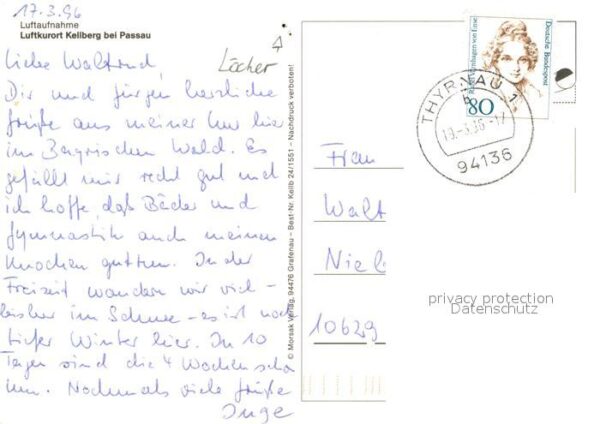 17.3.96
Luftaufnahme
Luftkurort Kellberg bei Passau
Löcher
Liebe Waltraud,
Dir und Jürgen herzliche
Grüße aus meiner Kur hier
im Bayrischen Wald. Es
gefällt mir recht gut und
ich hoffe, daß Bäder und
Gymnastik auch meinen
Knochen guttun. In der
Freizeit wandern wir viel -
bisher im Schnee - es ist noch
tiefer Winter hier. In 10
Tagen sind die 4 Wochen schon
um. Nochmals viele Grüße
Inge
© Morsak Verlag, 94476 Grafenau – Best-Nr. Kellb 24/1551 – Nachdruck verboten!
Deutsche Bundespost
80
THYRNAU 1
94136
Frau
Walt
Niel
10629
privacy protection
Datenschutz